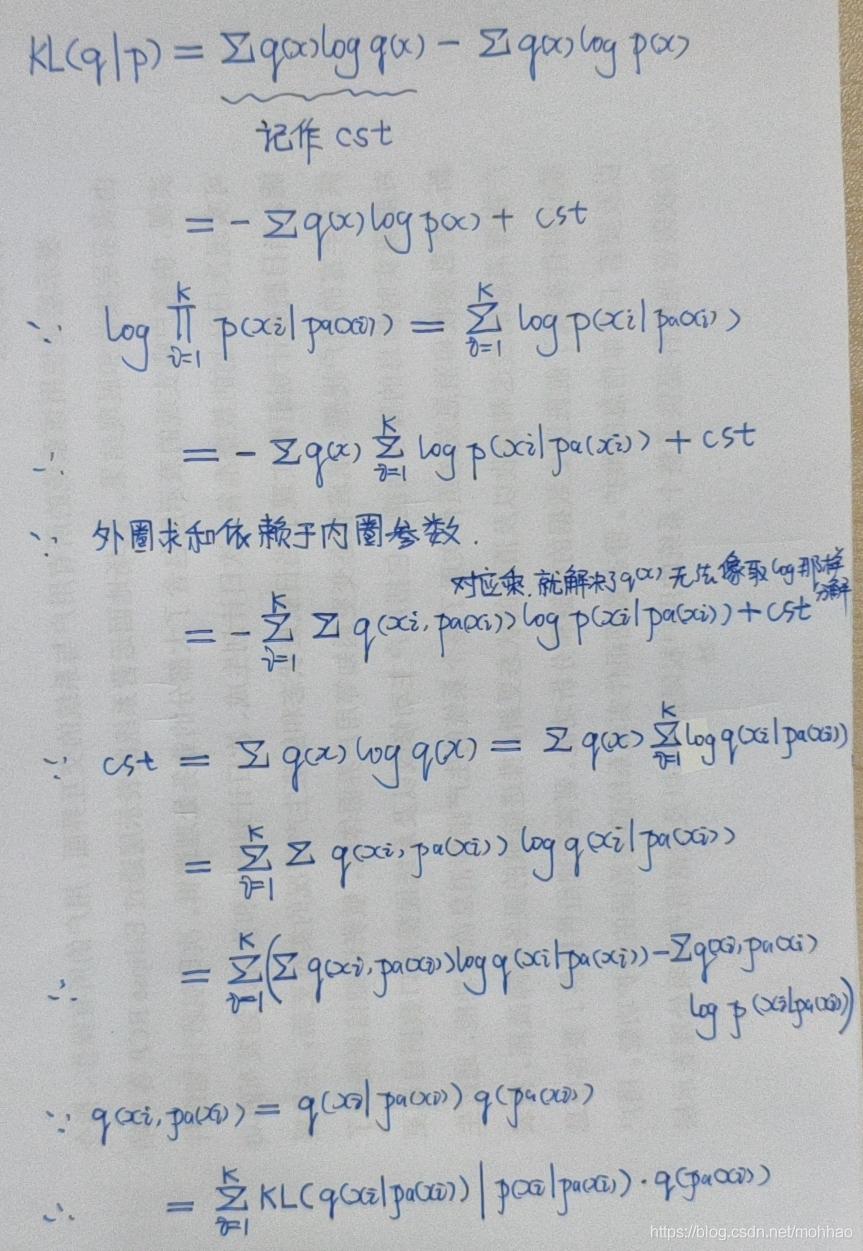 KL(q|p) = Σ q(x) log q(x) - Σ q(x) log p(x)
记作 cst
= - Σ q(x) log p(x) + cst
∵ log ∏_{i=1}^{K} p(xi|pa(xi)) = Σ_{i=1}^{K} log p(xi|pa(xi))
∴ = - Σ q(x) Σ_{i=1}^{K} log p(xi|pa(xi)) + cst
∵ 外圈求和依赖于内圈参数.
对应乘,就解决了q(x)无法像取log那样分解
= - Σ_{i=1}^{K} Σ q(xi, pa(xi)) log p(xi|pa(xi)) + cst
∵ cst = Σ q(x) log q(x) = Σ q(x) Σ_{i=1}^{K} log q(xi|pa(xi))
= Σ_{i=1}^{K} Σ q(xi, pa(xi)) log q(xi|pa(xi))
∴ = Σ_{i=1}^{K} (Σ q(xi, pa(xi)) log q(xi|pa(xi)) - Σ q(xi, pa(xi)
log p(xi|pa(xi)))
∵ q(xi, pa(xi)) = q(xi|pa(xi)) q(pa(xi))
∴ = Σ_{i=1}^{K} KL(q(xi|pa(xi)) | p(xi|pa(xi)) · q(pa(xi))
https://blog.csdn.net/mohhao